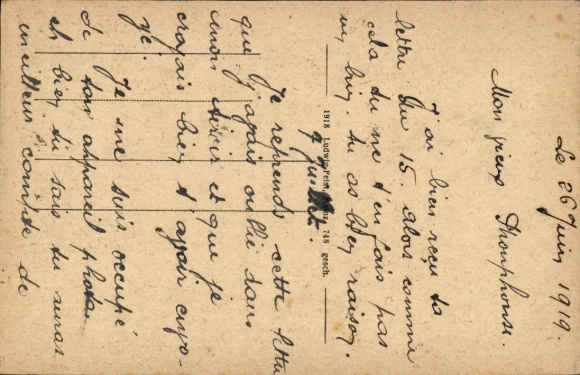 Le 26 Juin 1919.
Mon vieux
J'ai bien reçu ta
lettre du 15. alors comme
cela tu ne t'en fais pas
tu as bien raison.
1918 Ludwig Feist, Mainz 748 gesch.
9 Juillet.
Je reprends cette lettre
que j'avais oublié dans
mon et que je
croyais bien t'avoir envo-
yé.
Je me suis occupé
de ton appareil photo
et bien tu sais tu auras
meilleur compte de